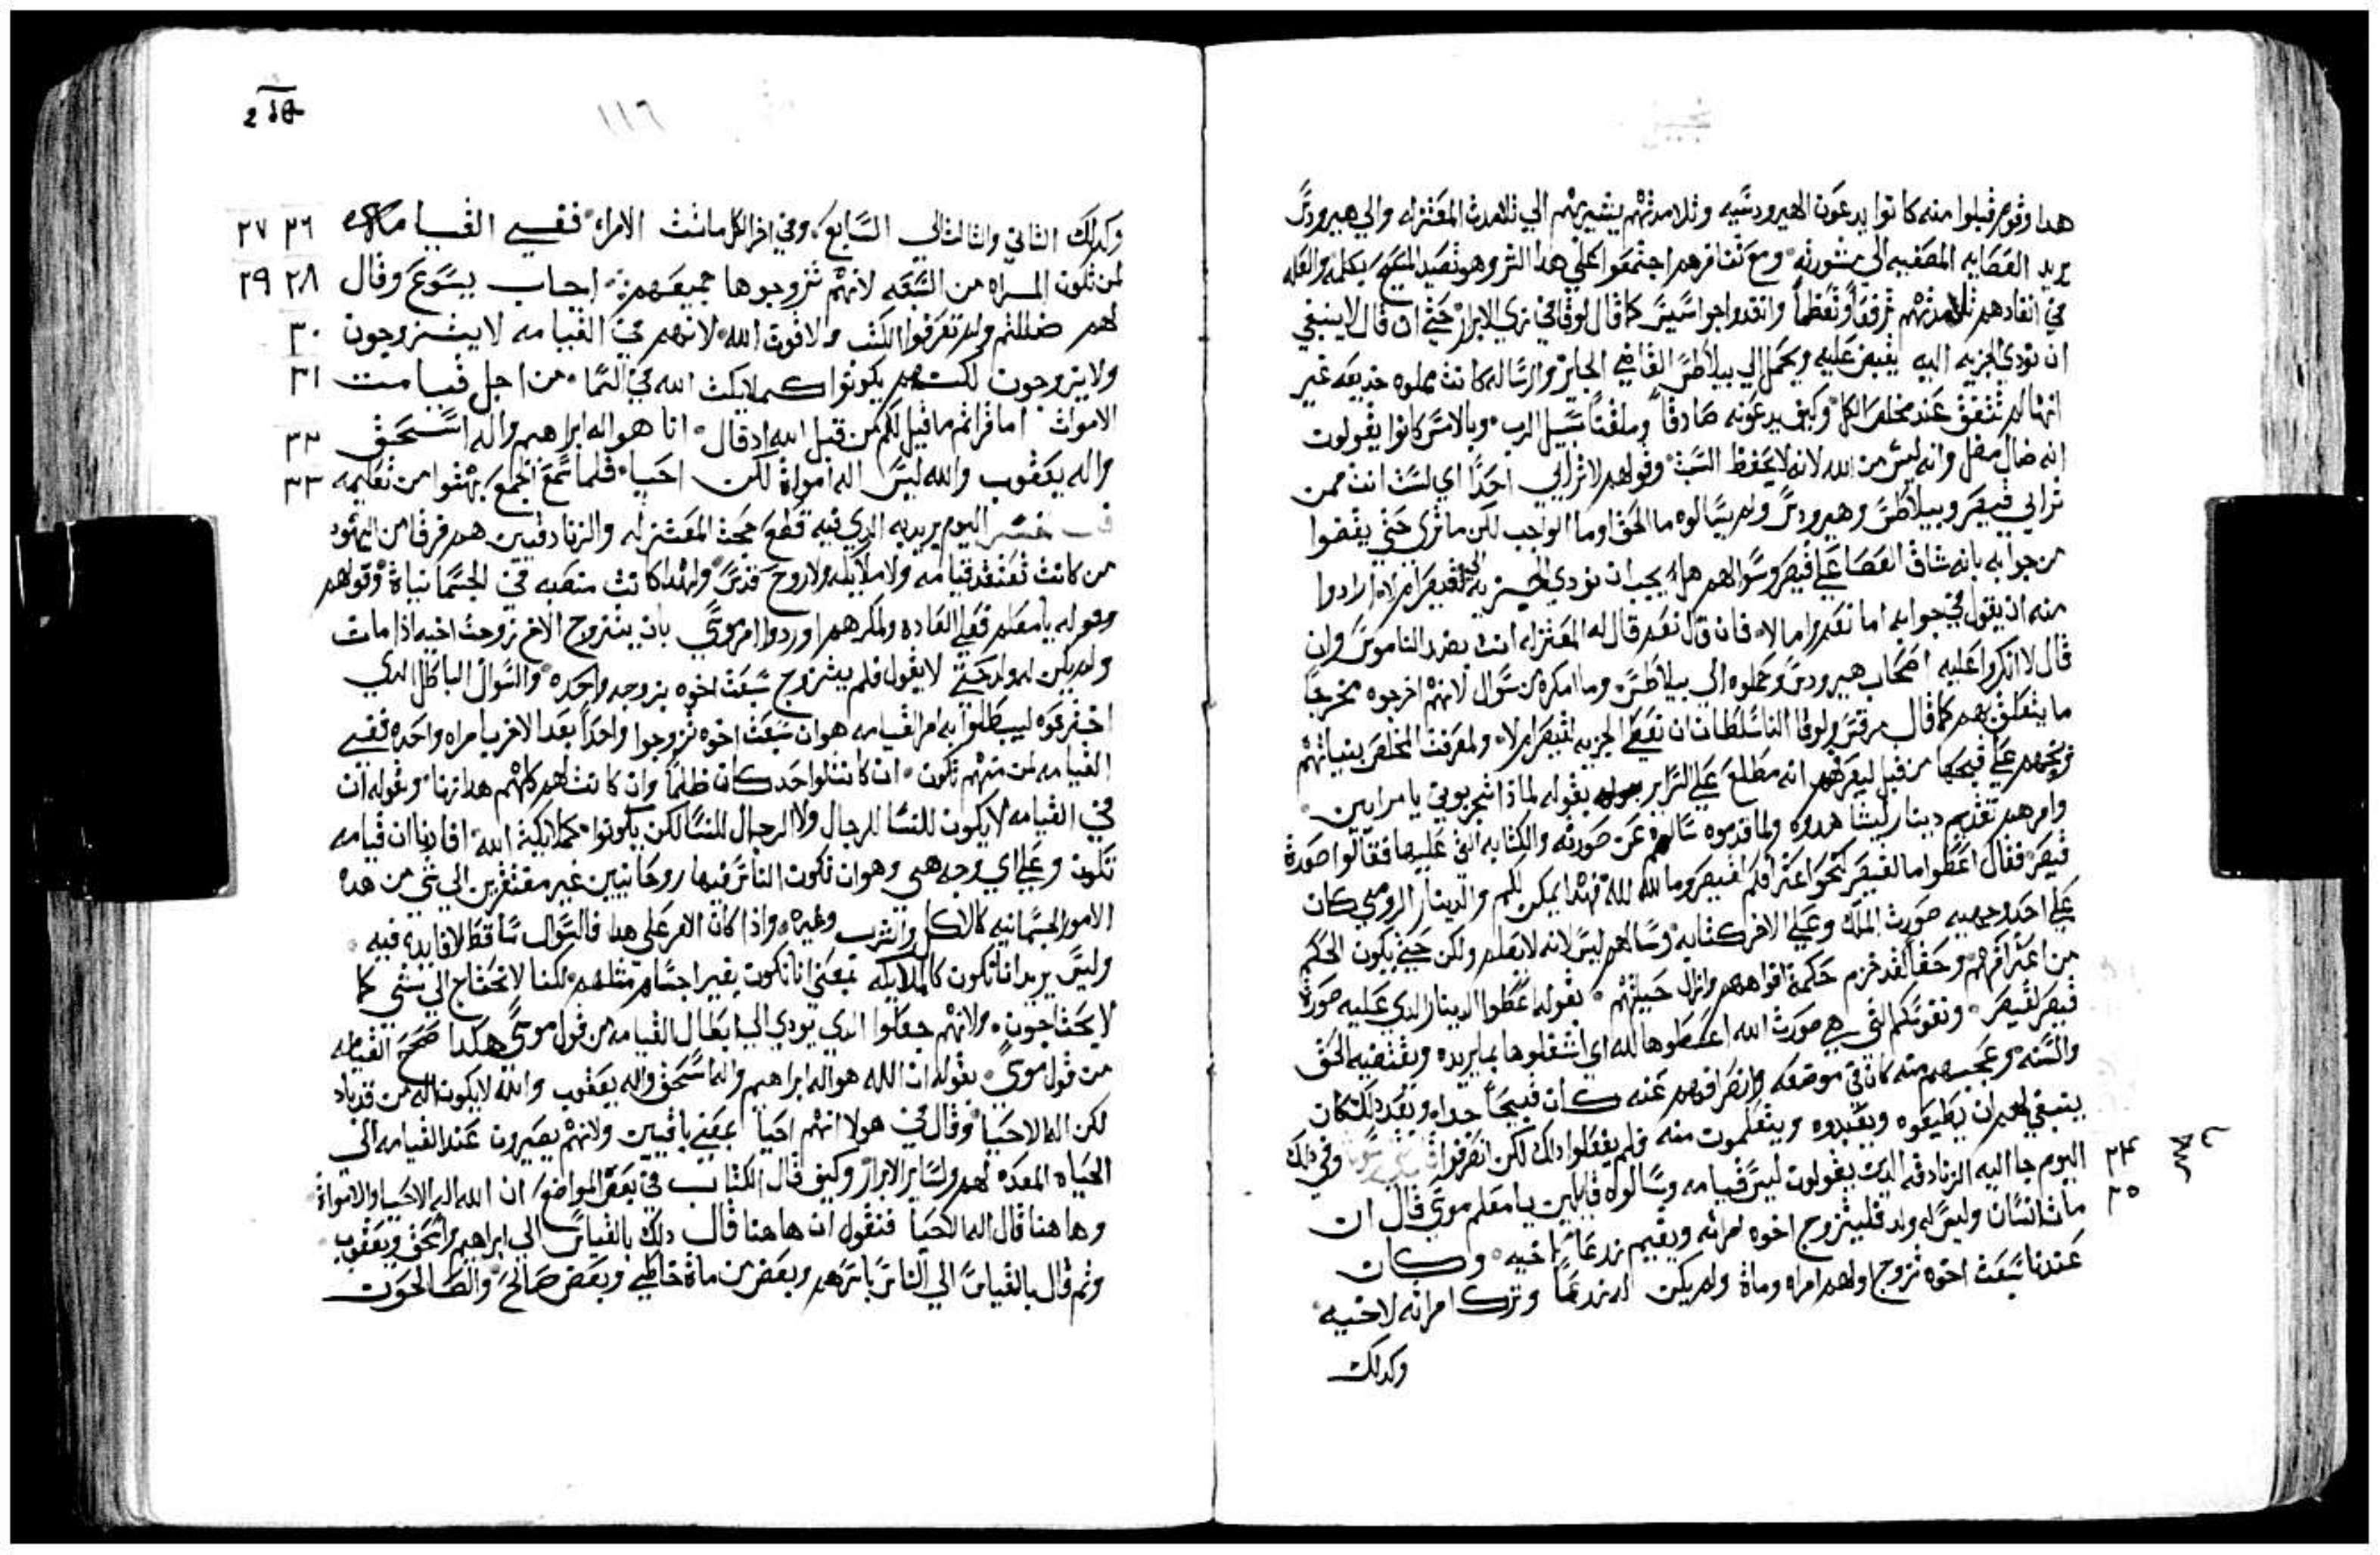 هدا وقوم قبلوا منه كانوا يدعون الهيرودسيه وتلامدتهم يشير بهم الي تلامدت المعتزله والي هيرودس
يريد العصابه المضيفه الي مشورته ومع تنافرهم اجتمعوا على هدا الشر وهو تصيد المسيح بكلمه والعله
في انفادهم تلامدتهم ترفعاً وتعظماً وانفدوا جواسيس كما قال لوقا في زي الابرار حتي ان قال لا ينبغي
ان نودي الجزيه اليه يقبض عليه ويحمل الي بيلاطس القاضي الجاير والرساله كانت مملوه خديعه غير
انها لم تتفق عند مخلص الكل وكيف يدعونه صادقاً وملقناً سبيل الرب وبالامس كانوا يقولوت
انه ضال مضل وانه ليس من الله لانه لا يحفظ السبت وقولهم لا ترايي احداً اي لست انت ممن
ترايي قيصر وبيلاطس وهيرودس ولم يسالوه ما الحق وما الواجب لكن ما تري حتي يقضوا
من جوابه بانه شاق العصا علي قيصر وسوالهم هل يجب ان نودي الجزيه الي قيصر ام لا ارادوا
منه ان يقول في جوابه اما نعم واما لا فان قال نعم قال له المعتزله انت بضد الناموس وان
قال لا انكروا عليه اصحاب هيرودس وحملوه الي بيلاطس وما امكره من سوال لانهم اخرجوه مخرجاً
ما يتعلق بهم كما قال مرقس ولوقا النا سلطان ان نعطي الجزيه لقيصر ام لا ولمعرفت المخلص بنياتهم
وبخهم علي قبحها من قبل ليعرفهم انه مطلع علي السراير بقوله لماذا تجربوني يا مرايين
وامرهم تقديم دينار ليشاهدوه ولما قدموه سالهم عن صورته والكتابه التي عليها فقالوا صورة
قيصر فقال اعطوا ما لقيصر لقيصر وما لله لله والدينار الرومي كان
علي احد وجهيه صورت الملك وعلي الاخر كتابه وسالهم ليس لانه لا يعلم ولكن حتي يكون الحكم
من اعترافهم وحقاً لقد خزم حكمه افواههم وازال حيلتهم بقوله اعطوا الدينار الدي عليه صورة
قيصر لقيصر ونفوسكم التي هي صورت الله اعطوها لله اي اشغلوها بما يريده ويقتضيه الحق
والسنه وعجبهم منه كان في موضعه وانصرافهم عنه كان قبيحاً جدا وبعد دلك كان
ينبغي لهم ان يطيعوه ويعبدوه ويتعلموت منه فلم يفعلوا دلك لكن انصرفوا وفي دلك
٢٣ اليوم جا اليه الزنادقه الدين يقولون ليس قيامه وسالوه قايلين يا معلم موسي قال ان
مات انسان وليس له ولد فليتزوج اخوه امراته ويقيم زرعاً لاخيه وكان
٢٥ عندنا سبعت اخوه تزوج اولهم امراه ومات ولم يكن له زرعاً وترك امراته لاخيه
وكدلك
١١٦
٢٦ ٢٧ وكدلك الثاني والثالث الي السابع وفي اخر الكل ماتت الامراه ففي القيامه
٢٨ ٢٩ لمن تكون المراه من السبعه لانهم تزوجوها جميعهم اجاب يسوع وقال
٣٠ لهم ضللتم ولم تعرفوا الكتب ولا قوت الله لانهم في القيامه لا يتزوجون
٣١ ولا يزوجون لكنهم يكونوا كملايكت الله في السما من اجل قيامت
٣٢ الاموات اما قراتم ما قيل لكم من قبل الله اد قال انا هو اله ابراهيم واله اسحق
٣٣ واله يعقوب والله ليس اله اموات لكن احيا فلما سمع الجمع بهتوا من تعليمه
اليوم يريد به الدي فيه قطع حجت المعتزله والزنادقيين هم فرقا من اليهود
من كانت تعتقد قيامه ولا ملايكه ولا روح قدس ولهدا كانت منصبه في الجسمانيات وقولهم
وقوله يا معلم فعلي العاده ولمكرهم اوردوا امر موسي بان يتزوج الاخ زوجت اخيه ادا مات
ولم يكن له ولد حتي لا يقول فلم يتزوج سبعت اخوه بزوجه واحده والسوال الباطل الدي
اخترعوه ليبطلوا به امر القيامه هو ان سبعت اخوه تزوجوا واحداً بعد الاخر بامراه واحده ففي
القيامه لمن منهم تكون ان كانت لواحد كان ظلماً وان كانت لهم كلهم هدا زنا وبقوله ان
في القيامه لا يكون للنسا للرجال ولا الرجال للنسا لكن يكونوا كملايكة الله افادنا ان قيامه
تكون وعلي اي وجه هي وهو ان تكون الناس فيها روحانيين غير مفتقرين الي شي من هده
الامور الجسمانيه كالاكل والشرب وغيره وادا كان الامر على هدا فالسوال ساقط لا فايده فيه
وليس يريد انا نكون كالملايكه بمعني انا نكون بغير اجسام مثلهم لكنا لا نحتاج الي شي كما
لا يحتاجون ولانهم جعلوا الدي يودي الي ابطال القيامه من قول موسي هكدا صحح القيامه
من قول موسي بقوله ان الله هو اله ابراهيم واله اسحق واله يعقوب والله لا يكون اله من قد باد
لكن اله الاحيا وقال في هولا انهم احيا بمعني باقيين ولانهم يصيرون عند القيامه الي
الحياه المعده لهم ولساير الابرار وكيف قال الكتاب في بعض المواضع ان الله اله الاحيا والاموات
وهاهنا قال اله الاحيا فنقول ان هاهنا قال دلك بالقياس الي ابراهيم واسحق ويعقوب
وثم قال بالقياس الي الناس باسرهم وبعض من مات خاطي وبعض صالح والصالحون